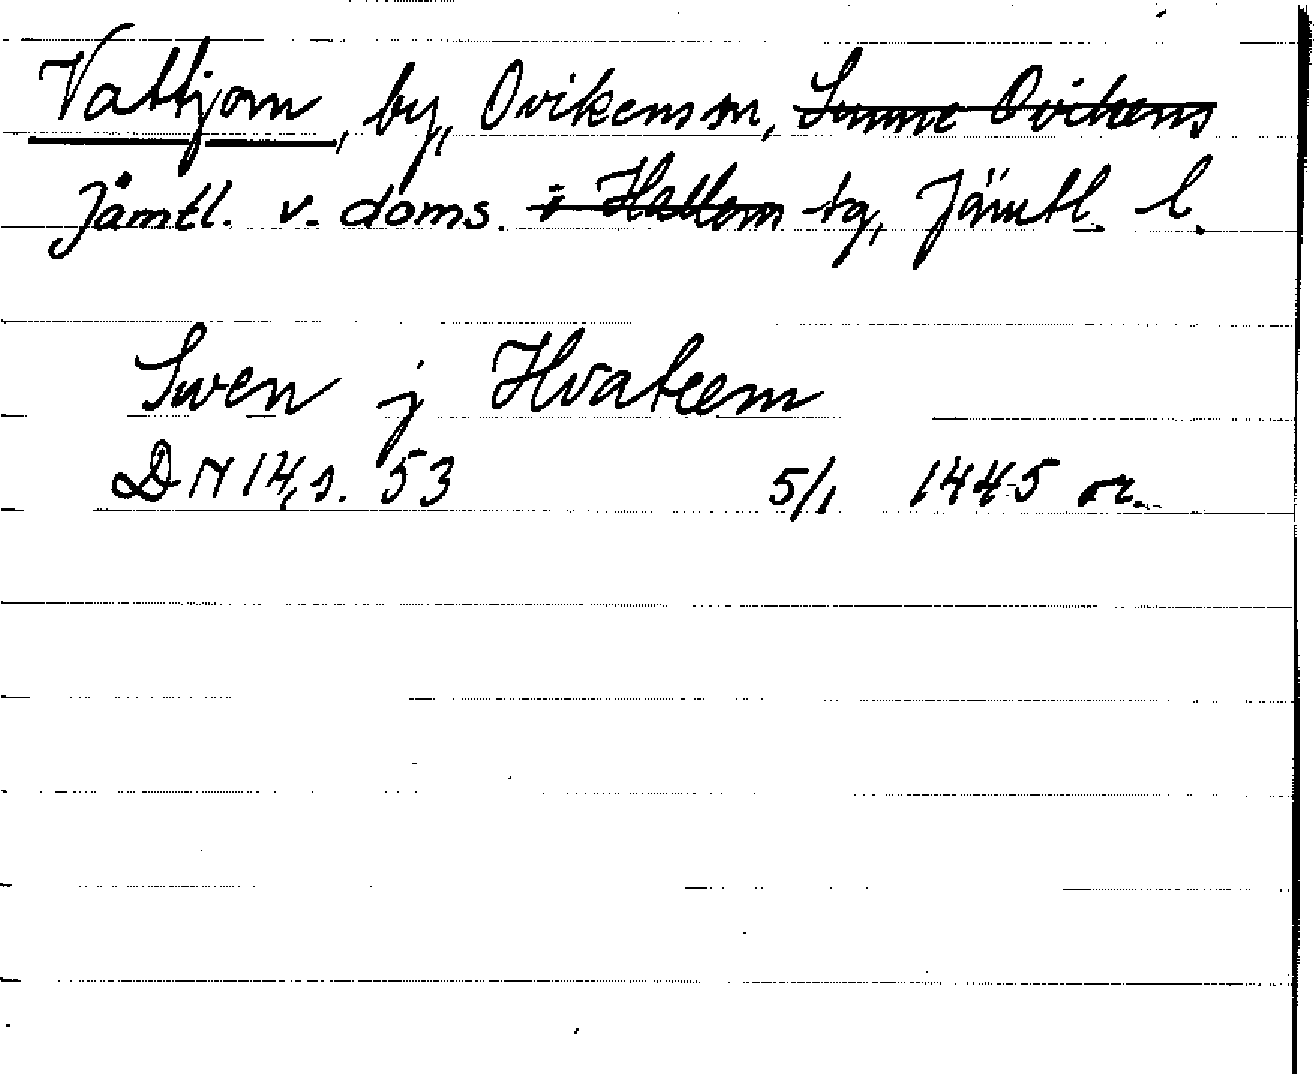 Vattjom, by, Ovikens sn, Sunne Ovikens
Jämtl. v. doms. o Hallom tg, Jämtl. l.
Swen j Hvateem
DN 14, s. 53 5/1 1445 or.